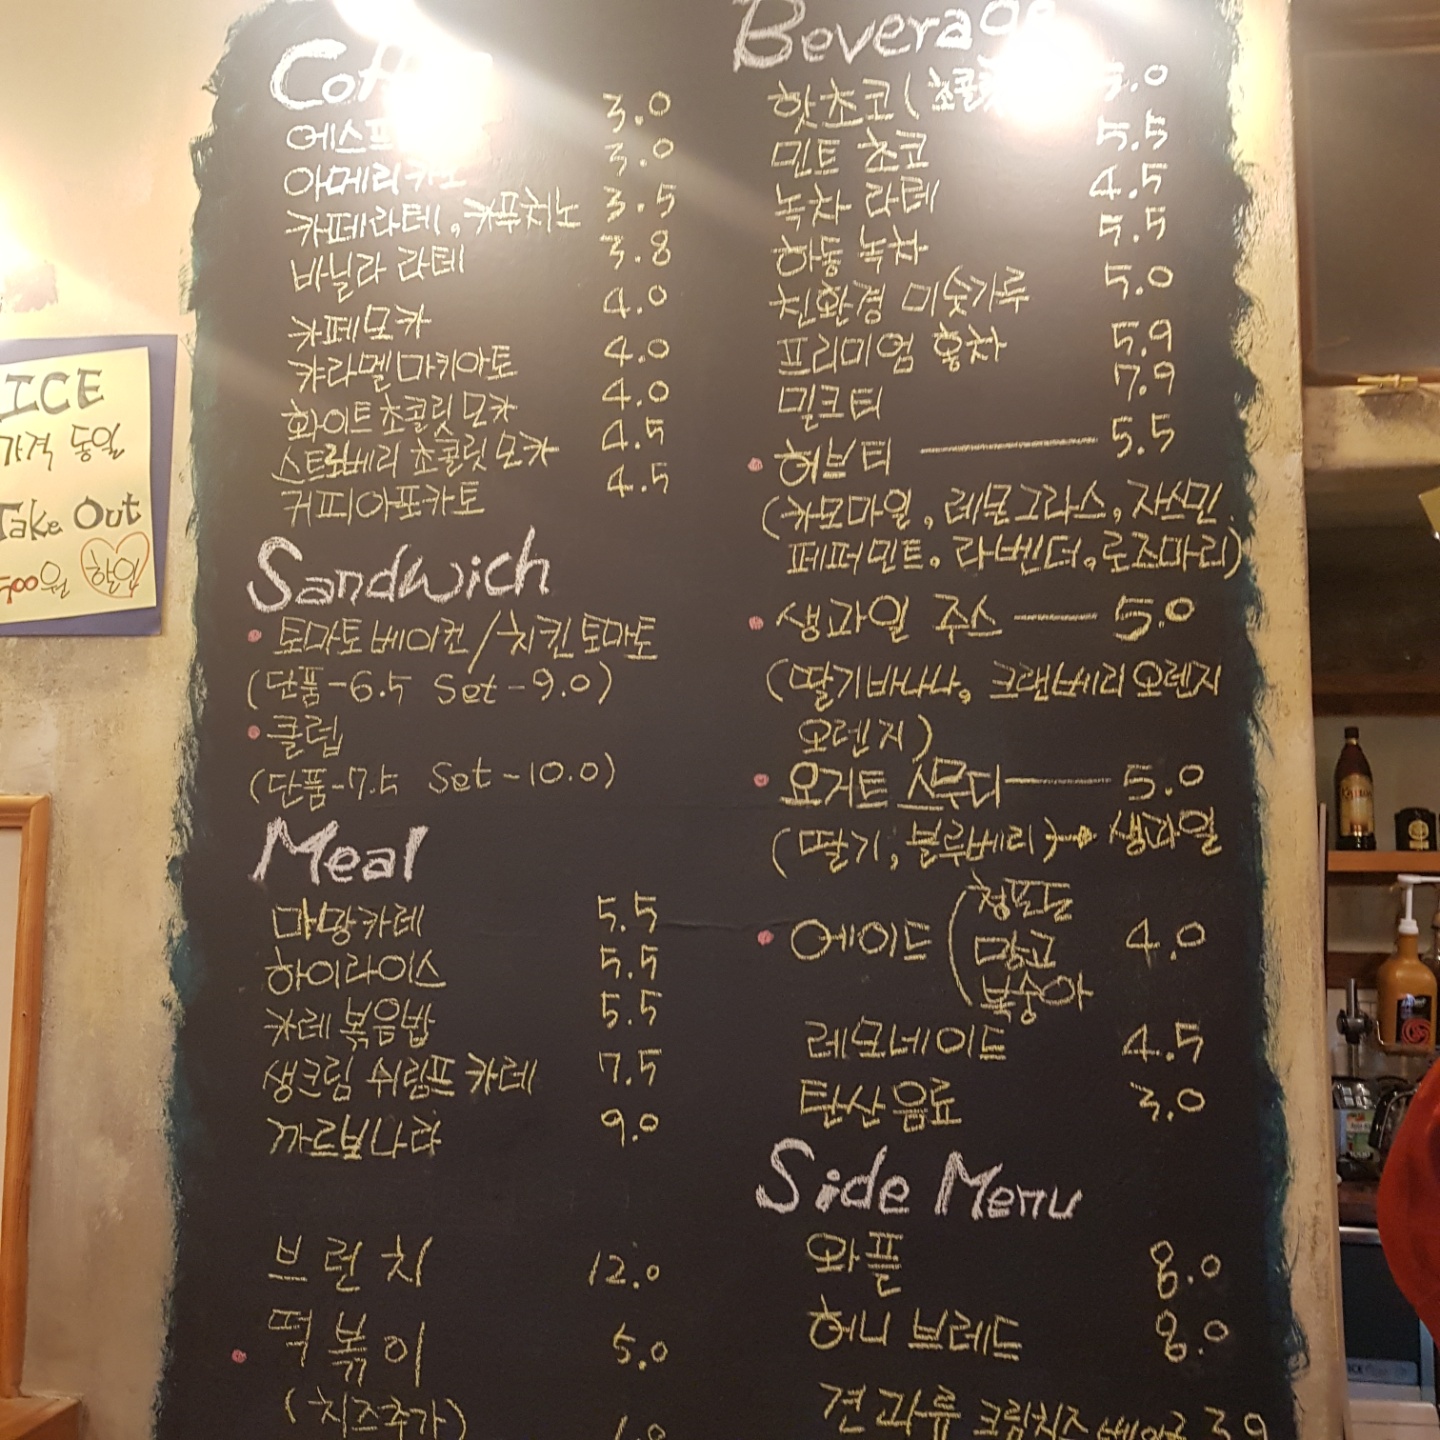 ICE
가격 동일
Take Out
500원 할인
Coffee
3.0
아메리카노 3.0
카페라테, 카푸치노 3.5
바닐라 라테 3.8
카페모카 4.0
캬라멜마키아토 4.0
화이트초콜릿모카 4.0
스트로베리 초콜릿모카 4.5
커피아포카토 4.5
Sandwich
토마토베이컨/치킨토마토
(단품-6.5 Set-9.0)
클럽
(단품-7.5 Set-10.0)
Meal
마망카레 5.5
하이라이스 5.5
카레볶음밥 5.5
생크림 쉬림프카레 7.5
까르보나라 9.0
브런치 12.0
떡볶이 5.0
(치즈추가) 1.0
Beverage
핫초코( .0
민트 초코 5.5
녹차 라테 4.5
하동 녹차 5.5
친환경 미숫가루 5.0
프리미엄 홍차 5.9
밀크티 7.9
허브티 — 5.5
(카모마일, 레몬그라스, 자스민,
페퍼민트, 라벤더, 로즈마리)
생과일 주스 — 5.0
(딸기바나나, 크랜베리오렌지
오렌지)
요거트 스무디 — 5.0
(딸기, 블루베리)→ 생과일
청포도
에이드 ( 망고 4.0
복숭아
레모네이드 4.5
탄산음료 3.0
Side Menu
와플 8.0
허니 브레드 8.0
견과류 크림치즈 베이글 3.9